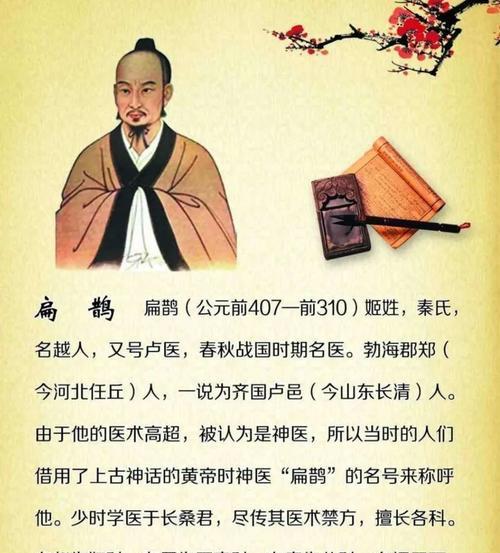 扁 鹊 扁鹊（公元前407—前310）姬姓，秦氏，
名越人，又号卢医，春秋战国时期名医。勃海郡郑（
今河北任丘）人，一说为齐国卢邑（今山东长清）人。
由于他的医术高超，被认为是神医，所以当时的人们
借用了上古神话的黄帝时神医“扁鹊”的名号来称呼
他。少时学医于长桑君，尽传其医术禁方，擅长各科。